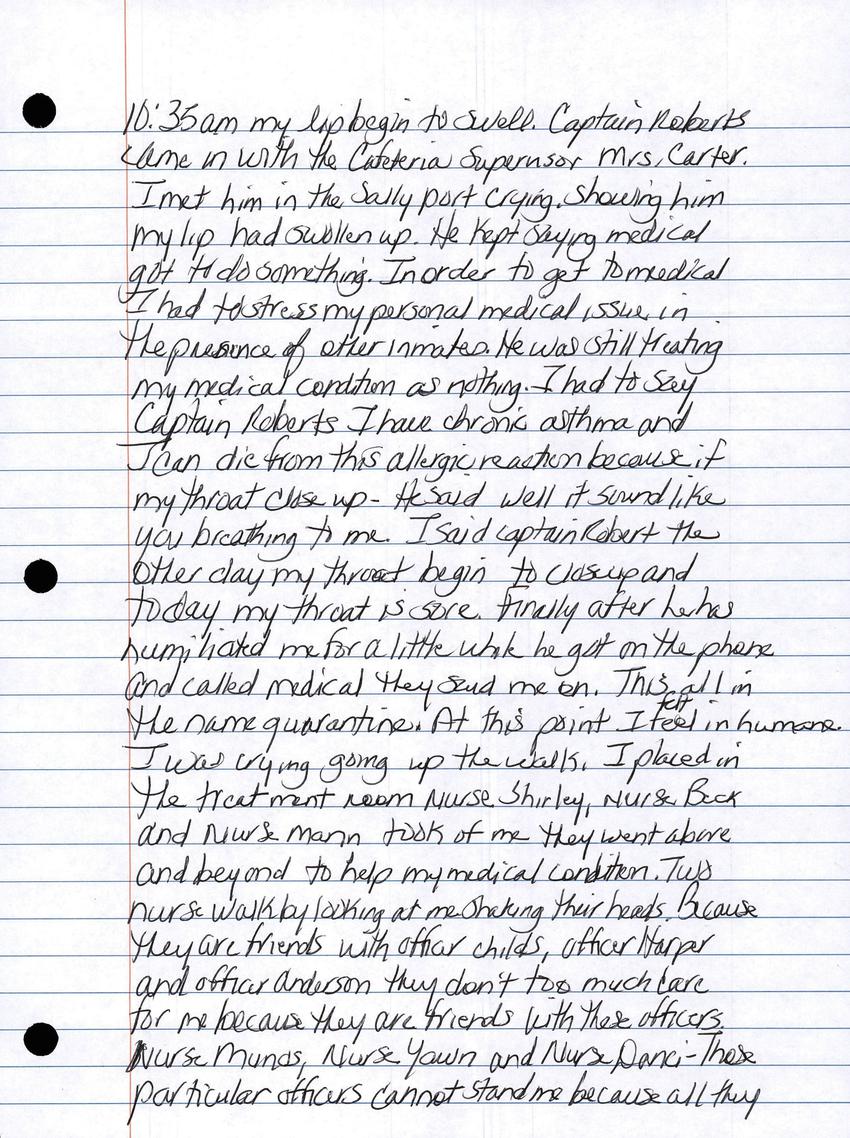 10:35am my lip begin to swell. Captain Roberts
came in with the Cafeteria Supervisor Mrs. Carter.
I met him in the Sally port crying. Showing him
my lip had swollen up. He kept saying medical
got to do something. In order to get to medical
I had to stress my personal medical issue in
the presence of other inmates. He was still treating
my medical condition as nothing. I had to say
Captain Roberts I have chronic asthma and
I can die from this allergic reaction because if
my throat close up - He said well it sound like
you breathing to me. I said captain Robert the
other day my throat begin to close up and
today my throat is sore. Finally after he has
humiliated me for a little while he got on the phone
and called medical they send me on. This all in
the name quarantine. At this point I felt in humane.
I was crying going up the walk. I placed in
the treatment room Nurse Shirley, Nurse Beck
and Nurse Mann took of me they went above
and beyond to help my medical condition. Two
nurse walk by looking at me shaking their heads. Because
they are friends with officer childs, officer Harper
and officer Anderson they don't too much care
for me because they are friends with these officers.
Nurse Munds, Nurse Yawn and Nurse Danci - These
particular officers cannot stand me because all they